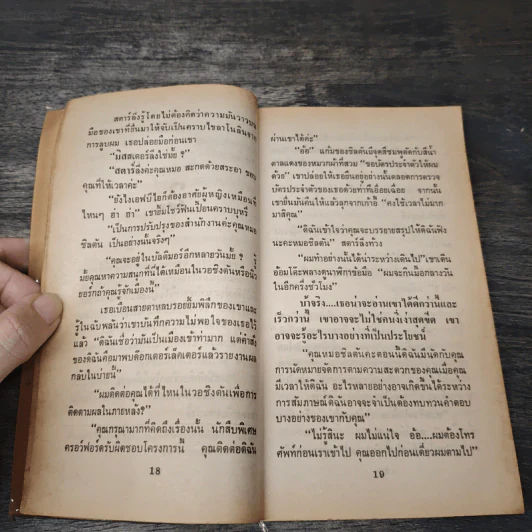 สตาร์ลิ่งรู้โดยไม่ต้องคิดว่าความมันวาวบน
มือของเขาที่ยื่นมาให้จับเป็นคราบไขลาโนลินจาก
การลูบผม เธอปล่อยมือก่อนเขา
“มิสสเตอร์ลิงใช่มั้ย ?”
“สตาร์ลิ่งค่ะคุณหมอ สะกดด้วยสระอา ขอบ
คุณที่ให้เวลาค่ะ”
“ยังไงเอฟบีไอก็ต้องอาศัยผู้หญิงเหมือนที่
ไหนๆ ฮ่า ฮ่า” เขายิ้มโชว์ฟันเปื้อนคราบบุหรี่
“เป็นการปรับปรุงของสำนักงานค่ะคุณหมอ
ชิลตัน เป็นอย่างนั้นจริงๆ”
“คุณจะอยู่ในบัลติมอร์อีกหลายวันมั้ย ? รู้
มั้ยคุณหาความสนุกที่นี่ได้เหมือนในวอชิงตันหรือนิว
ยอร์กถ้าคุณรู้จักเมืองนี้”
เธอเบือนสายตาหลบรอยยิ้มพิลึกของเขาและ
รู้ในฉับพลันว่าเขาบันทึกความไม่พอใจของเธอไว้
แล้ว “ดิฉันเชื่อว่ามันเป็นเมืองเข้าท่ามาก แต่คำสั่ง
ของดิฉันคือมาพบด็อกเตอร์เล็คเตอร์แล้วรายงานผล
กลับในบ่ายนี้”
“ผมติดต่อคุณได้ที่ไหนในวอชิงตันเพื่อการ
ติดตามผลในภายหลัง?”
“คุณกรุณามากที่คิดถึงเรื่องนั้น นักสืบพิเศษ
ครอว์ฟอร์ดรับผิดชอบโครงการนี้ คุณติดต่อดิฉัน
18
ผ่านเขาได้ค่ะ”
“อ้อ” แก้มของชิลตันมีจุดสีชมพูตัดกับสีน้ำ
ตาลแดงของหมวกผ้าที่สวม “ขอบัตรประจำตัวให้ผม
ด้วย” เขาปล่อยให้เธอยืนอยู่อย่างนั้นตลอดการตรวจ
บัตรประจำตัวของเธอด้วยท่าที่อ้อยเอื่อย จากนั้น
เขายื่นมันคืนให้แล้วลุกจากเก้าอี้ “คงใช้เวลาไม่มาก
มาสิคุณ”
“ดิฉันเข้าใจว่าคุณจะบรรยายสรุปให้ดิฉันฟัง
นะคะหมอชิลตัน” สตาร์ลิ่งท้วง
“ผมทำอย่างนั้นได้น่าระหว่างเดินไป” เขาเดิน
อ้อมโต๊ะพลางดูนาฬิกาข้อมือ “ผมจะกินมื้อกลางวัน
ในอีกครึ่งชั่วโมง”
บ้าจริง....เธอน่าจะอ่านเขาได้ดีกว่านี้และ
เร็วกว่านี้ เขาอาจจะไม่ใช่คนงี่เง่าสุดขีด เขา
อาจจะรู้อะไรบางอย่างที่เป็นประโยชน์
“คุณหมอชิลตันคะตอนนี้ดิฉันมีนัดกับคุณ
การนัดหมายจัดการตามความสะดวกของคุณเมื่อคุณ
มีเวลาให้ดิฉัน อะไรหลายอย่างอาจเกิดขึ้นได้ระหว่าง
การสัมภาษณ์ดิฉันอาจจะจำเป็นต้องทบทวนคำตอบ
บางอย่างของเขากับคุณ”
“ไม่รู้สินะ ผมไม่แน่ใจ อ้อ....ผมต้องโทร
ศัพท์ก่อนเราเข้าไป คุณออกไปก่อนเดี๋ยวผมตามไป”
19